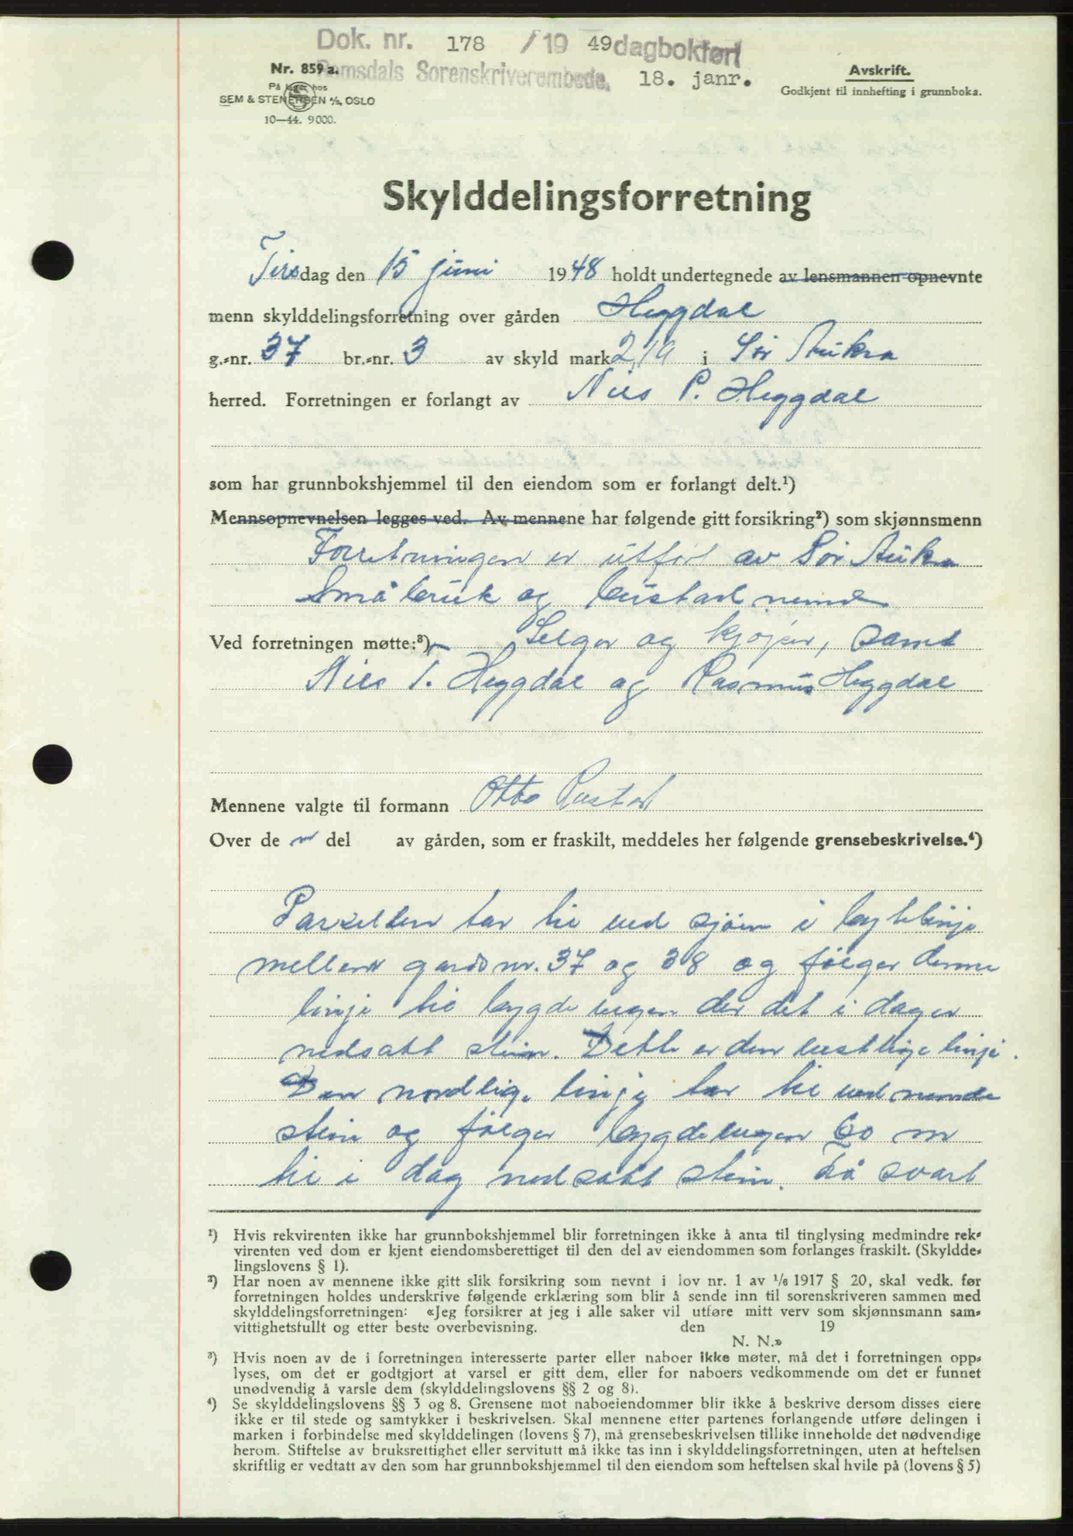 Dok. nr. 178 / 19 49 dagbokført
Romsdals Sorenskriverembede. 18. janr.
Nr. 859 a.
På lager hos
SEM & STENERSEN A/S, OSLO
10—44. 9000.
Avskrift.
Godkjent til innhefting i grunnboka.
Skylddelingsforretning
Tirsdag den 15 juni 1948 holdt undertegnede av lensmannen opnevnte
menn skylddelingsforretning over gården Heggdal
g.-nr. 37 br.-nr. 3 av skyld mark 2,19 i Sør Aukra
herred. Forretningen er forlangt av Nils P. Heggdal
som har grunnbokshjemmel til den eiendom som er forlangt delt.¹)
Mennsopnevnelsen legges ved. Av mennene har følgende gitt forsikring²) som skjønnsmenn
Forretningen er utført av Sør Aukra
Småbruk og bustadnemd
Ved forretningen møtte:³) Selger og kjøper, samt
Nils T. Heggdal og Rasmus Heggdal
Mennene valgte til formann Otto
Over de n del av gården, som er fraskilt, meddeles her følgende grensebeskrivelse.⁴)
Parzellen tar til ved sjøen i bytelinje
mellem gards nr. 37 og 38 og følger denne
linje til bygdevegen der det i dag er
nedsatt stein. Dette er den vestlige linje.
Den nordlige linje tar til ved nemde
stein og følger bygdevegen 60 m
til i dag nedsatt stein. Så svart
¹) Hvis rekvirenten ikke har grunnbokshjemmel blir forretningen ikke å anta til tinglysing medmindre rek-
virenten ved dom er kjent eiendomsberettiget til den del av eiendommen som forlanges fraskilt. (Skyldde-
lingslovens § 1).
²) Har noen av mennene ikke gitt slik forsikring som nevnt i lov nr. 1 av 1/6 1917 § 20, skal vedk. før
forretningen holdes underskrive følgende erklæring som blir å sende inn til sorenskriveren sammen med
skylddelingsforretningen: «Jeg forsikrer at jeg i alle saker vil utføre mitt verv som skjønnsmann sam-
vittighetsfullt og etter beste overbevisning. den 19
N. N.»
³) Hvis noen av de i forretningen interesserte parter eller naboer ikke møter, må det i forretningen opp-
lyses, om det er godtgjort at varsel er gitt dem, eller for naboers vedkommende om det er funnet
unødvendig å varsle dem (skylddelingslovens §§ 2 og 8).
⁴) Se skylddelingslovens §§ 3 og 8. Grensene mot naboeiendommer blir ikke å beskrive dersom disses eiere
ikke er til stede og samtykker i beskrivelsen. Skal mennene etter partenes forlangende utføre delingen i
marken i forbindelse med skylddelingen (lovens § 7), må grensebeskrivelsen tillike inneholde det nødvendige
herom. Stiftelse av bruksrettighet eller servitutt må ikke tas inn i skylddelingsforretningen, uten at heftelsen
skriftlig er vedtatt av den som har grunnbokshjemmel til den eiendom som heftelsen skal hvile på (lovens § 5)